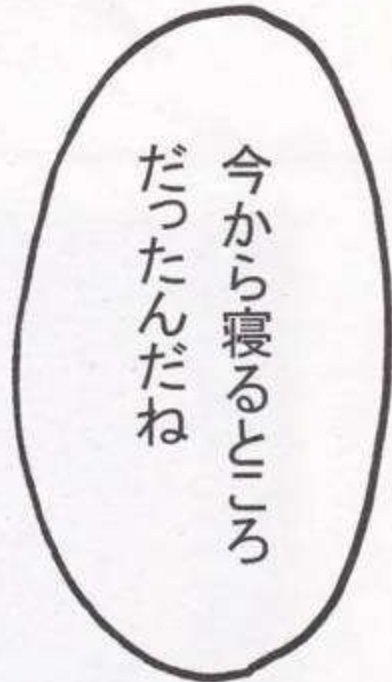 今から寝るところ
だったんだね